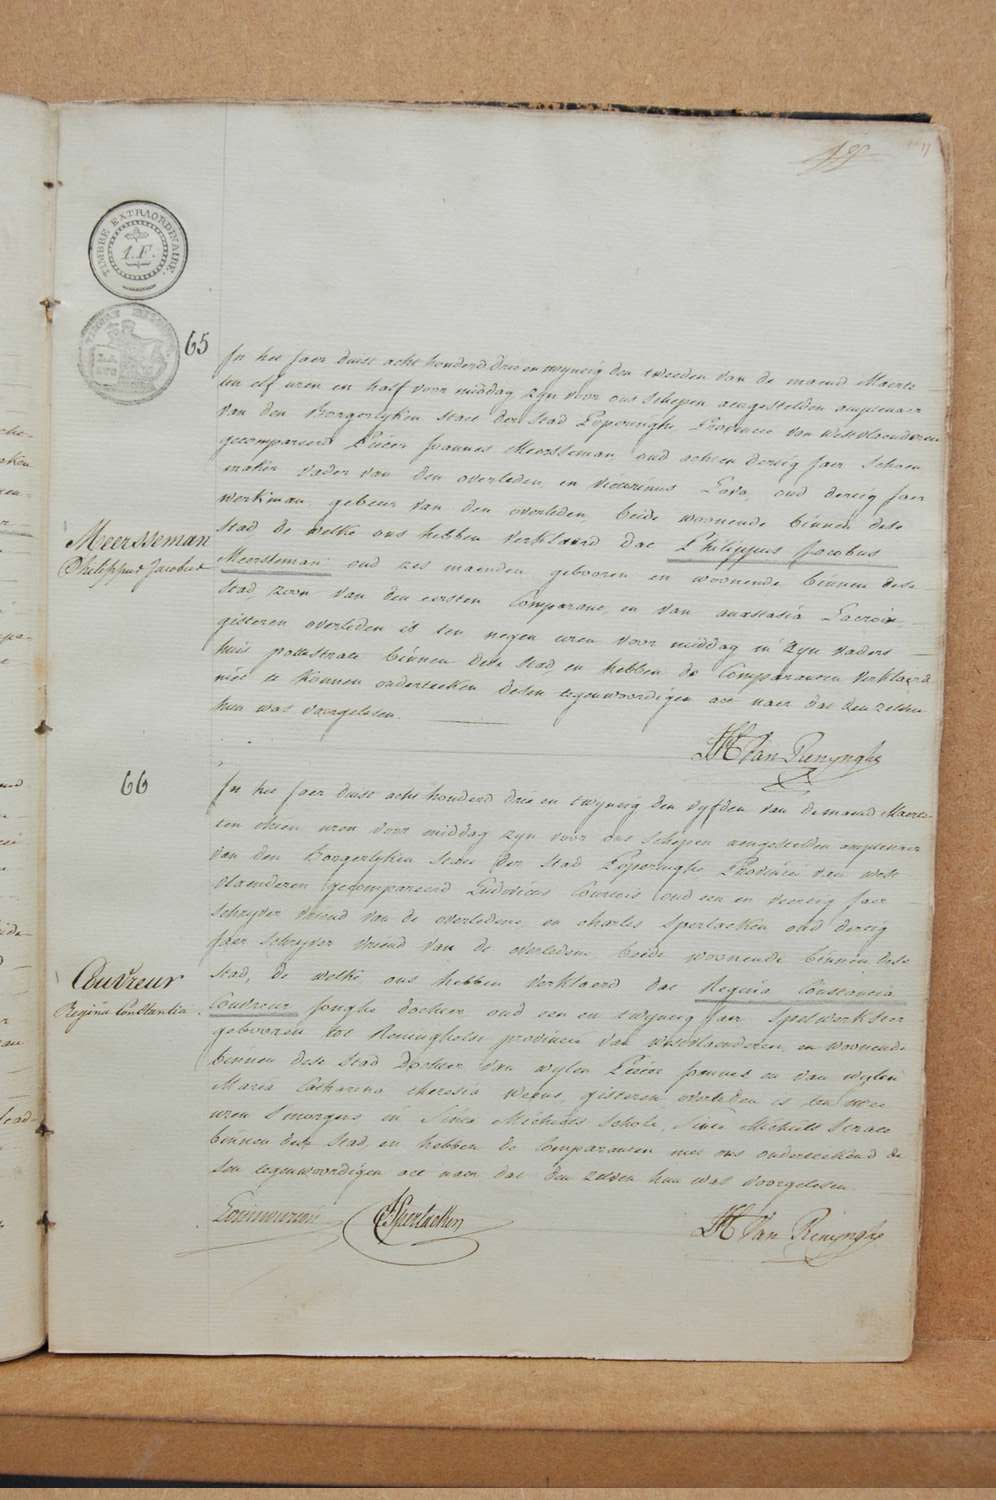 19
TIMBRE EXTRAORDINAIRE
1. F.
65
In het jaer duist acht honderd drie en twyntig den tweeden van de maend Maerte
ten elf uren en half voor middag zyn voor ons schepen aengestelden amptenaer
van den Borgerlyken staet der stad Poperinghe Provincie van westvlaenderen
gecompareerd Pieter Joannes Meersseman oud acht en dertig jaer schoen
maker vader van den overleden, en Victorinus oud dertig jaer
werkman, gebeur van den overleden, beide woonende binnen dese
stad, de welke ons hebben verklaerd dat Philippus Jacobus
Meersseman oud zes maenden gebooren en woonende binnen dese
stad, zoon van den eersten Comparant, en van anastasia Lacroix,
gisteren overleden is ten negen uren voor middag in zyn vaders
huis pottestraete binnen dese stad, en hebben de Comparanten verklaerd
niet te konnen onderteeken desen tegenwoordigen act naer dat den zelven
hun was voorgelesen.
Meersseman
Philippus Jacobus
Van Renynghe
66
In het jaer duist acht honderd drie en twyntig den vyfden van de maend Maerte
ten thien uren voor middag zyn voor ons schepen aengestelden amptenaer
van den Borgerlyken staet der stad Poperinghe Provincie van west
vlaenderen gecompareerd Ludovicus oud een en veertig jaer
schryver vriend van de overledene, en charles Sperlaeken oud dertig
jaer schryver vriend van de overledene beide woonende binnen dese
stad, de welke ons hebben verklaerd dat Regina Constancia
Couvreur jonghe dochter oud een en twyntig jaer spelwerkster
gebooren tot Reninghelst provincie van westvlaenderen, en woonende
binnen dese stad Dochter van wylen Pieter joannes en van wylen
Maria Catharina theresia gisteren overleden is ten twee
uren smorgens in Sinte Michiels Schole, Sinte Michiels straete
binnen dese stad, en hebben de Comparanten met ons onderteekend de
sen tegenwoordigen act naer dat den zelven hun was voorgelesen
Couvreur
Regina Constantia
C Sperlaeken
Van Renynghe